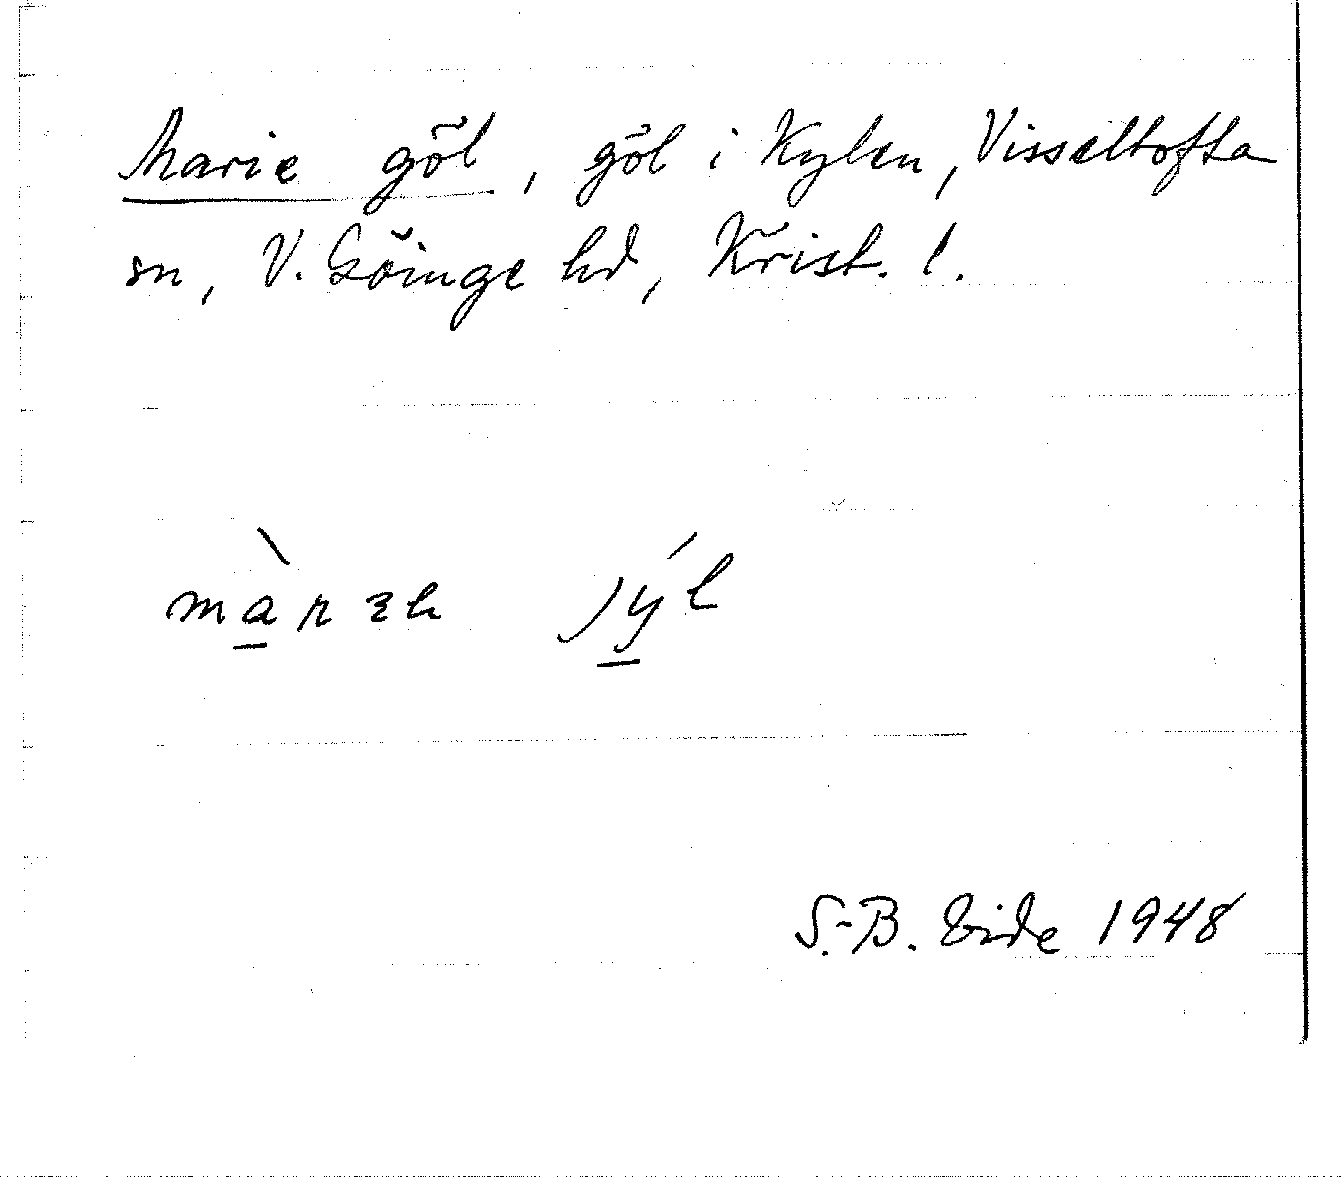 Marie göl, göl i Kylen, Visseltofta
sn, V. Göinge hd, Krist. l.
S.-B. Vide 1948